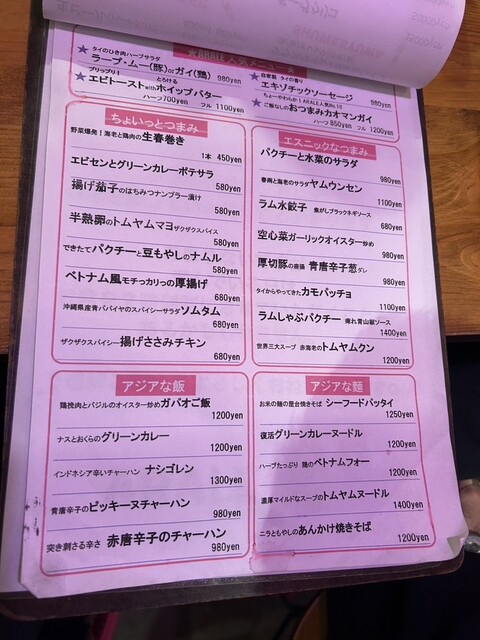 ★ARALE人気メニュー★
★タイのひき肉ハーブサラダ
ラープ・ムー(豚)orガイ(鶏) 980yen
プリップリ! とろける
★エビトーストwithホイップバター
ハーフ700yen フル 1100yen
★自家製 タイの香り
エキゾチックソーセージ
980yen
ちょーやわらか!ARALE人気No.1!!
★ご飯なしのおつまみカオマンガイ
ハーフ 850yen フル 1200yen
ちょいっとつまみ
野菜爆発!海老と鶏肉の生春巻き
1本 450yen
エビセンとグリーンカレーポテサラ
580yen
揚げ茄子のはちみつナンプラー漬け
580yen
半熟卵のトムヤムマヨ ザクザクスパイス
580yen
できたてパクチーと豆もやしのナムル
580yen
ベトナム風モチッカリっの厚揚げ
680yen
沖縄県産青パパイヤのスパイシーサラダソムタム
680yen
ザクザクスパイシー 揚げささみチキン
680yen
エスニックなつまみ
パクチーと水菜のサラダ
980yen
春雨と海老のサラダヤムウンセン
1100yen
ラム水餃子 焦がしブラックネギソース
680yen
空心菜ガーリックオイスター炒め
980yen
厚切豚の唐揚 青唐辛子葱ダレ
980yen
タイからやってきたカモパッチョ
1100yen
ラムしゃぶパクチー 痺れ青山椒ソース
1400yen
世界三大スープ 赤海老のトムヤムクン
1200yen
アジアな飯
鶏挽肉とバジルのオイスター炒めガパオご飯
1200yen
ナスとおくらのグリーンカレー
1200yen
インドネシア辛いチャーハン ナシゴレン
1300yen
青唐辛子のピッキーヌチャーハン
980yen
突き刺さる辛さ 赤唐辛子のチャーハン
980yen
アジアな麺
お米の麺の屋台焼きそば シーフードパッタイ
1250yen
復活グリーンカレーヌードル
1200yen
ハーブたっぷり 鶏のベトナムフォー
1200yen
濃厚マイルドなスープのトムヤムヌードル
1400yen
ニラともやしのあんかけ焼きそば
1200yen